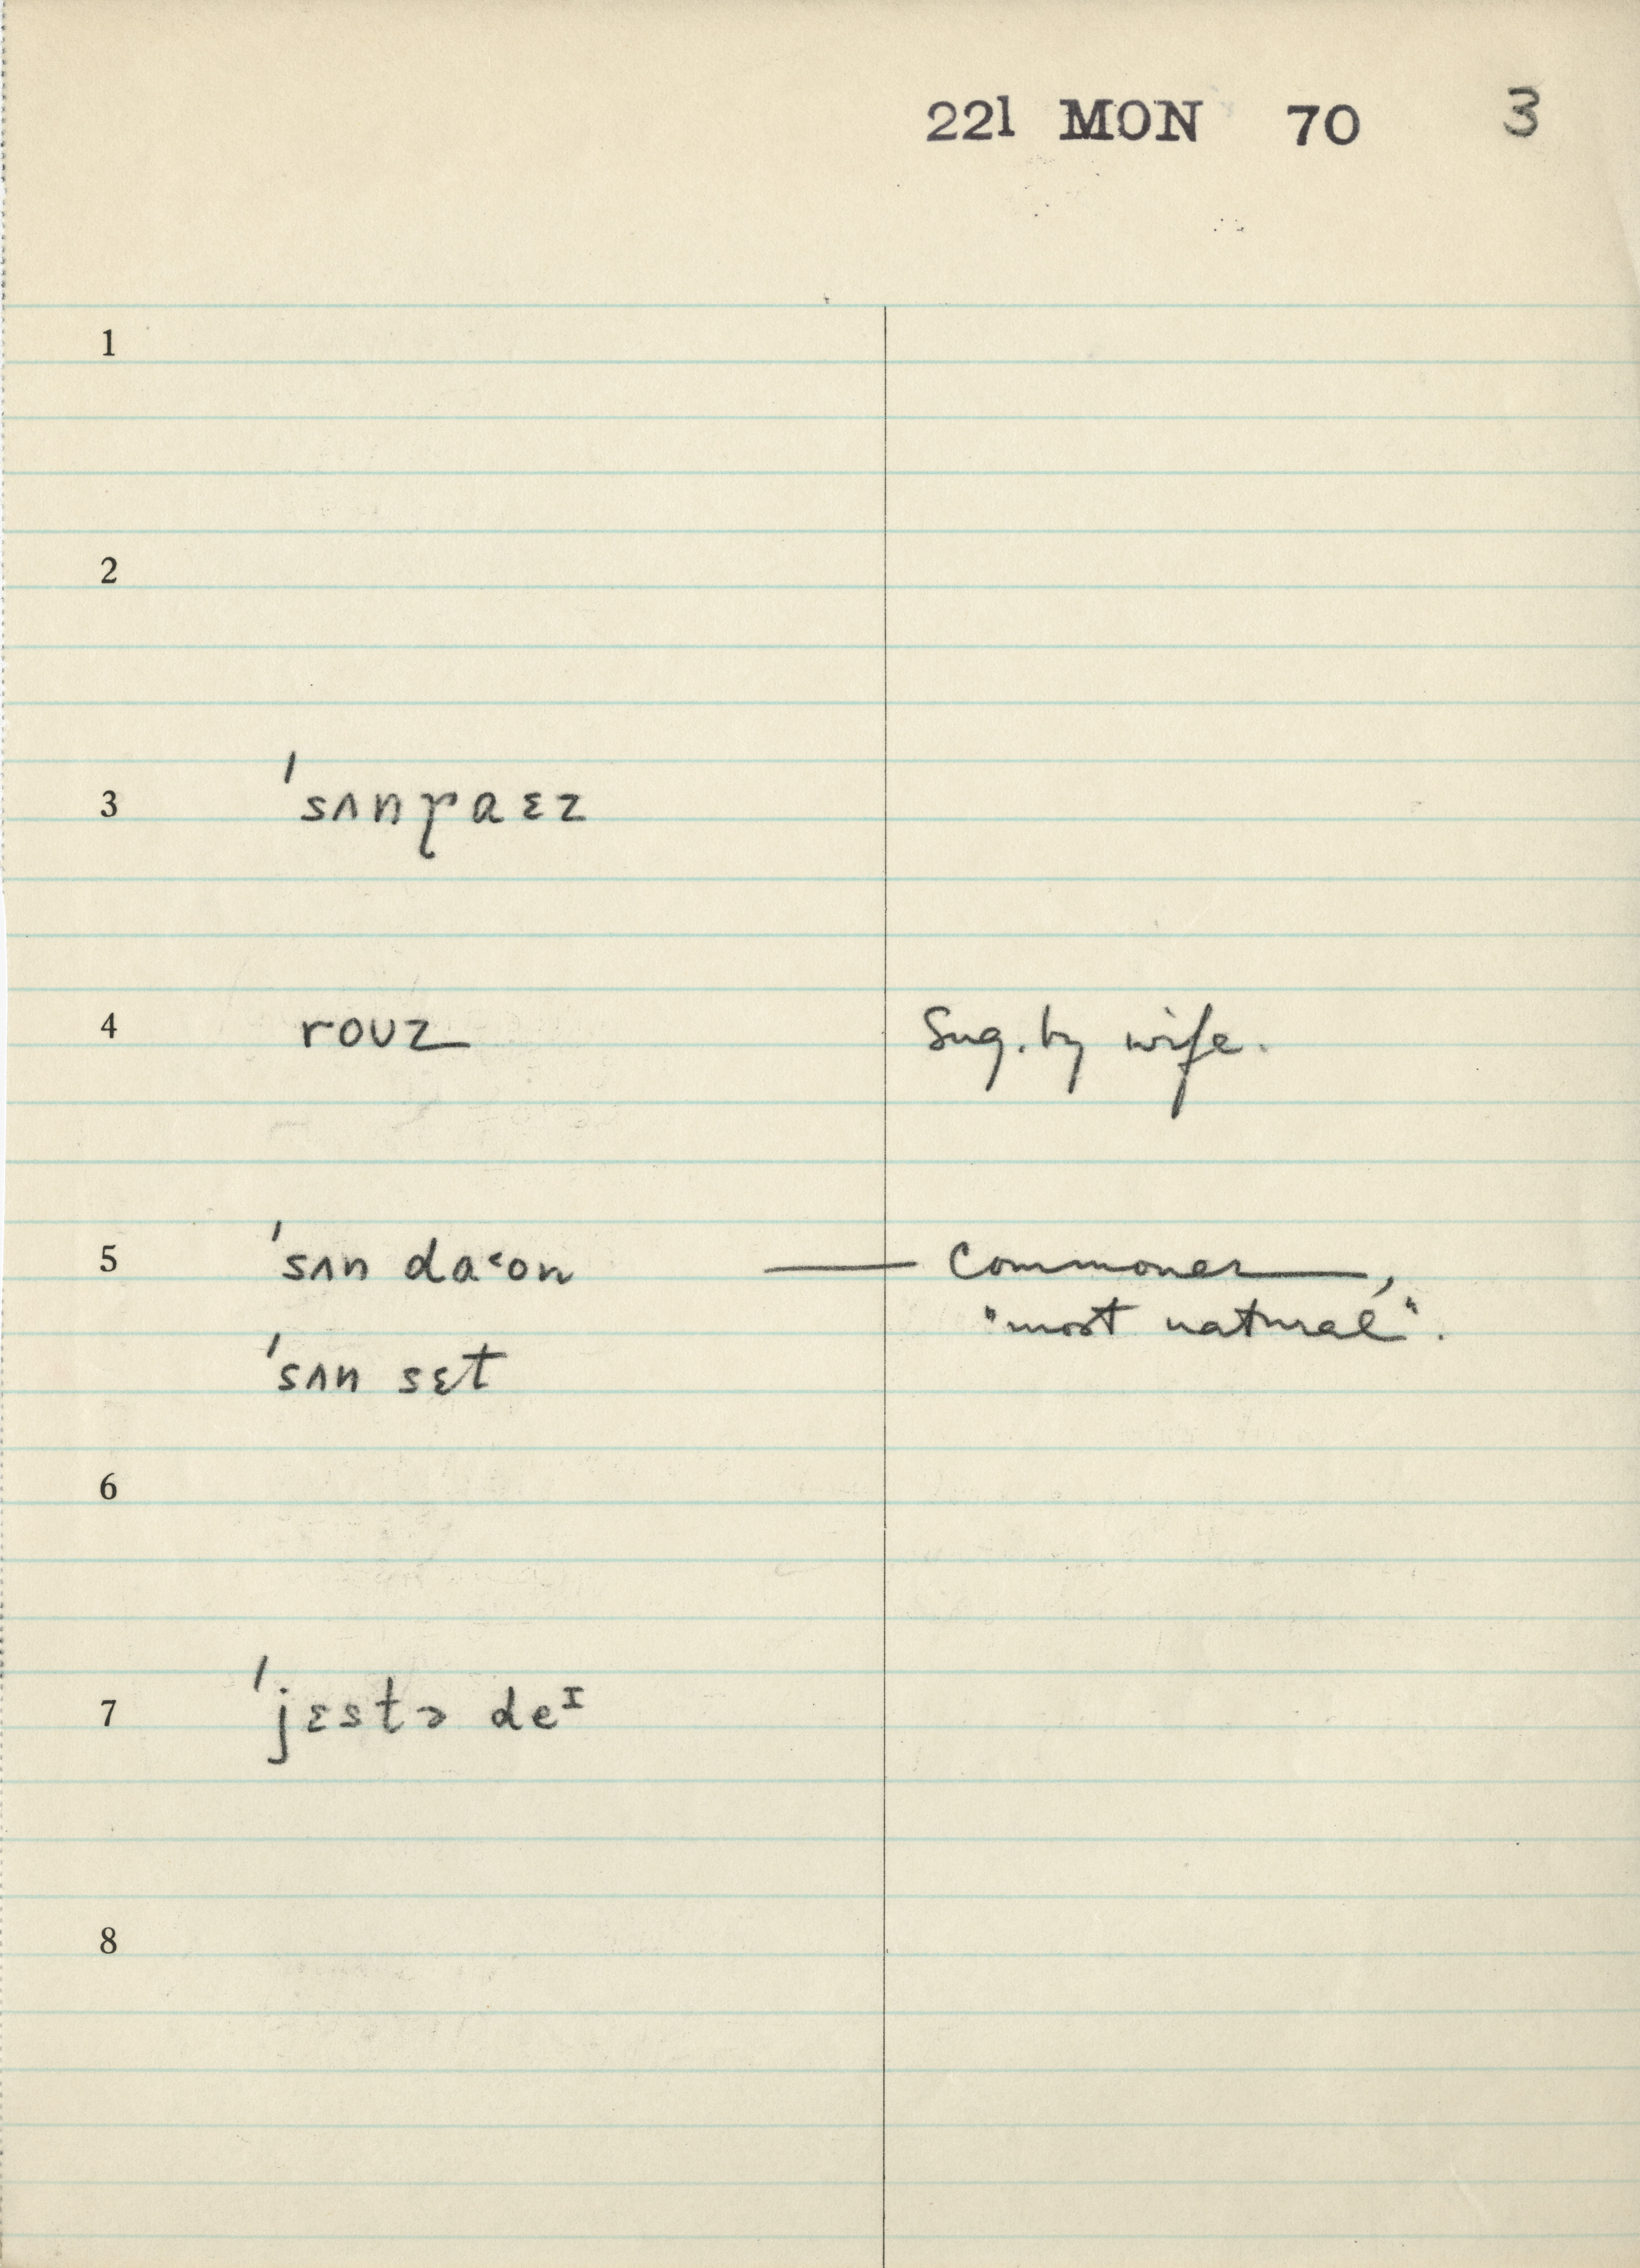 221 MON 70 3
1
2
3 'sʌnɽaɛz
4 roʊz Sug. by wife.
5 'sʌn da˂ᴏn — Commoner,
"most natural".
'sʌn sɛt
6
7 'jɛstə deᴵ
8